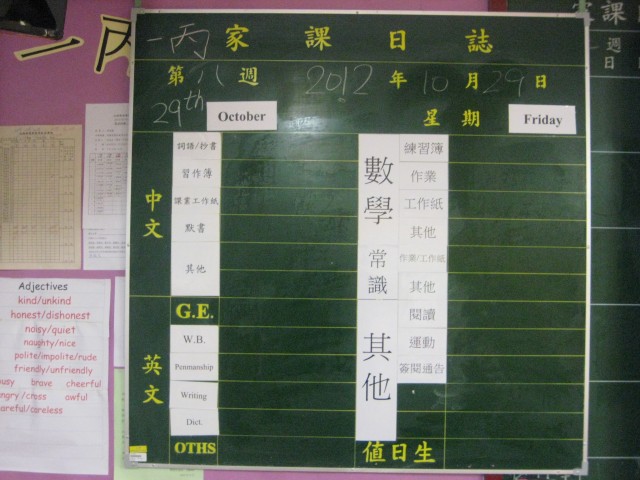 一丙
一丙 家課日誌
第八週 2012年10月29日
29th October 星期 Friday
中文
詞語/抄書
習作簿
課業工作紙
默書
其他
英文
G.E.
W.B.
Penmanship
Writing
Dict.
OTHS
數學
練習簿
作業
工作紙
其他
常識
作業/工作紙
其他
其他
閱讀
運動
簽閱通告
值日生
Adjectives
kind/unkind
honest/dishonest
noisy/quiet
naughty/nice
polite/impolite/rude
friendly/unfriendly
brave cheerful
/cross awful
careless
家課
週
日